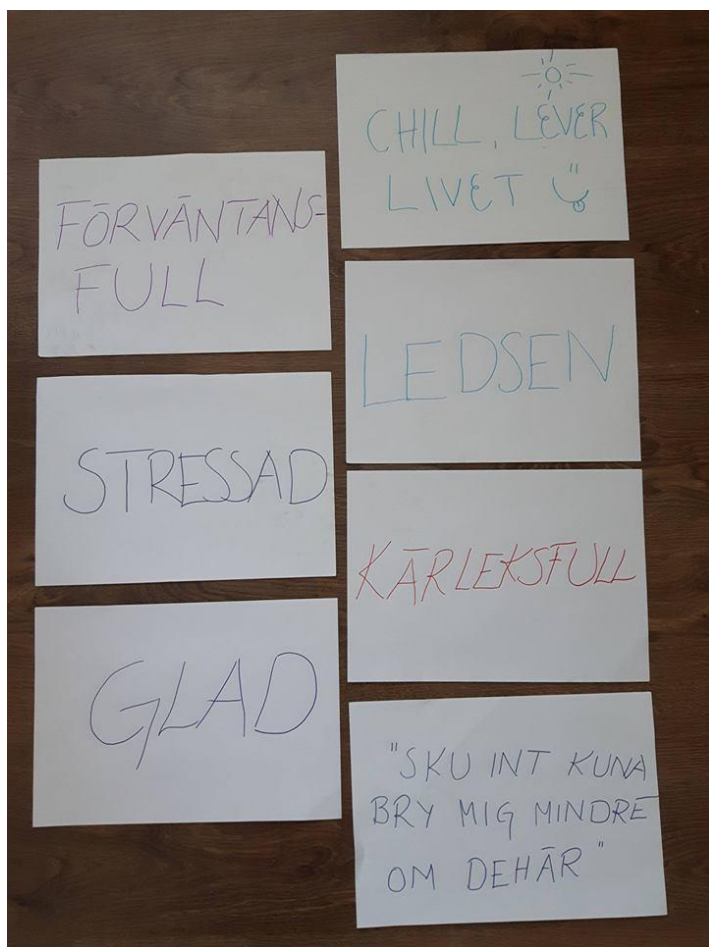 FÖRVÄNTANS-
FULL
STRESSAD
GLAD
CHILL, LEVER
LIVET
LEDSEN
KÄRLEKSFULL
"SKU INT KUNA
BRY MIG MINDRE
OM DEHÄR"